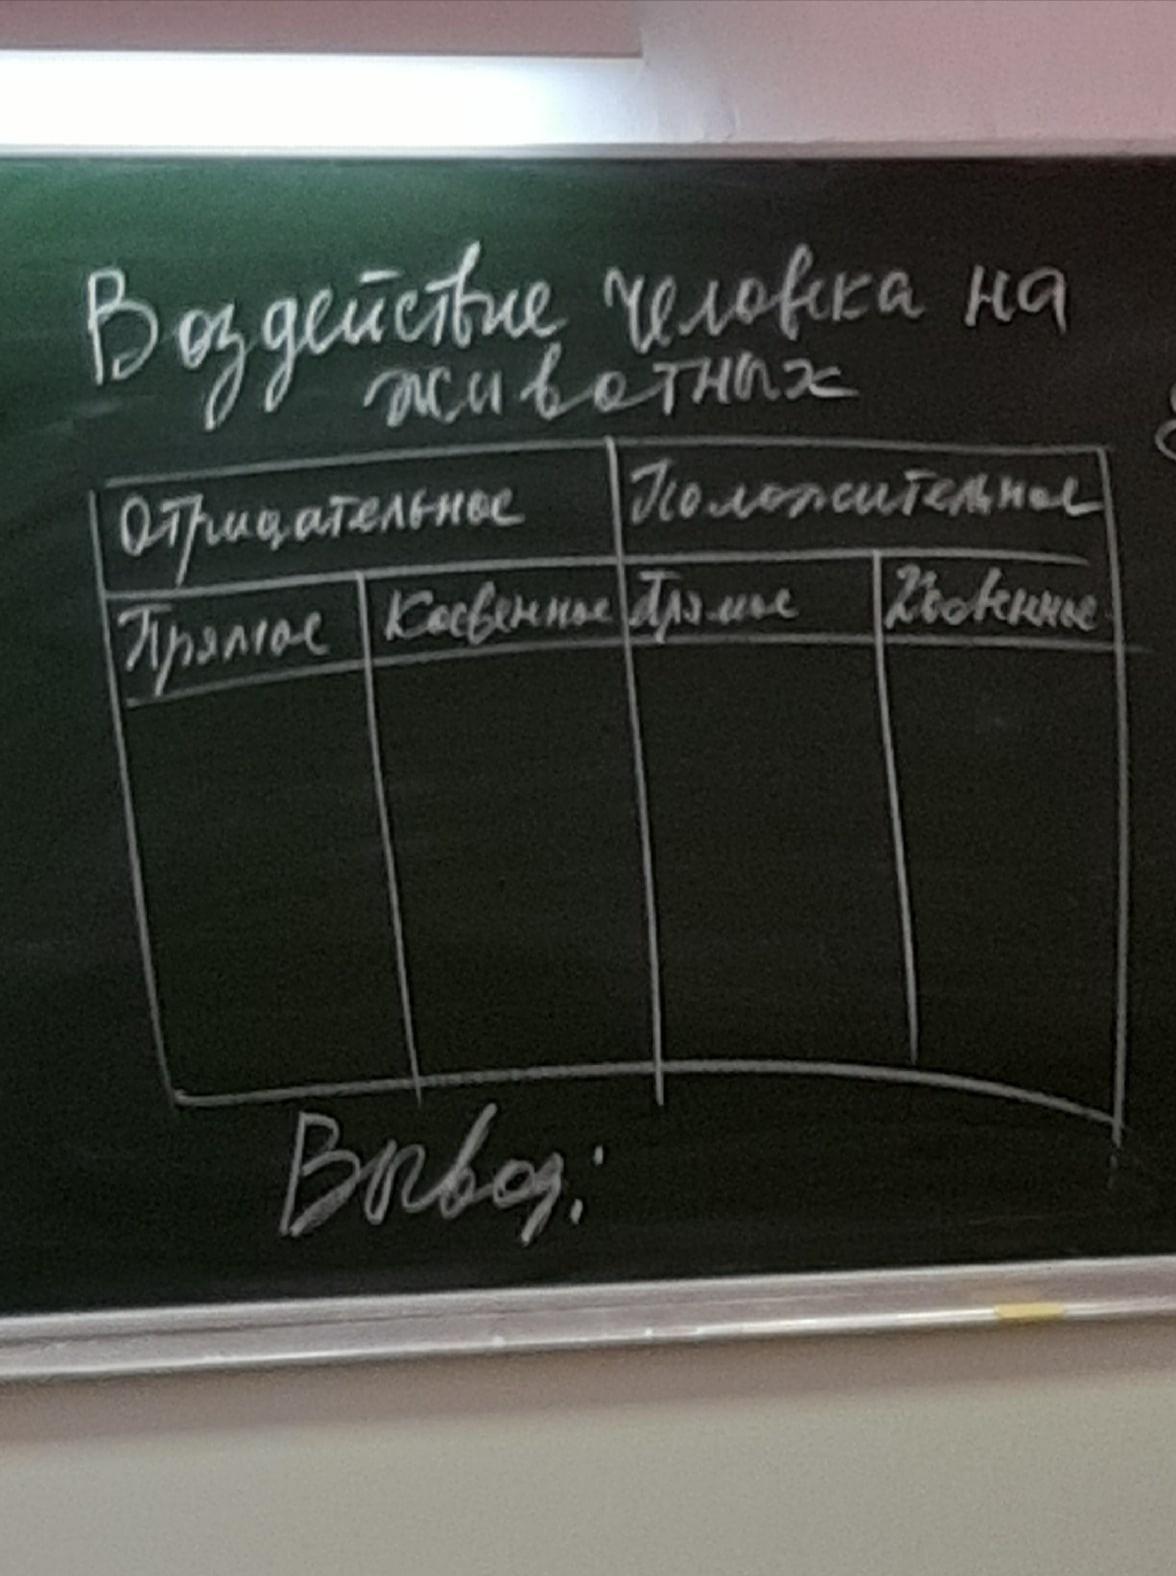 Воздействие человека на
животных
Отрицательное Положительное
Прямое Косвенное Прямое Косвенное
Вывод: